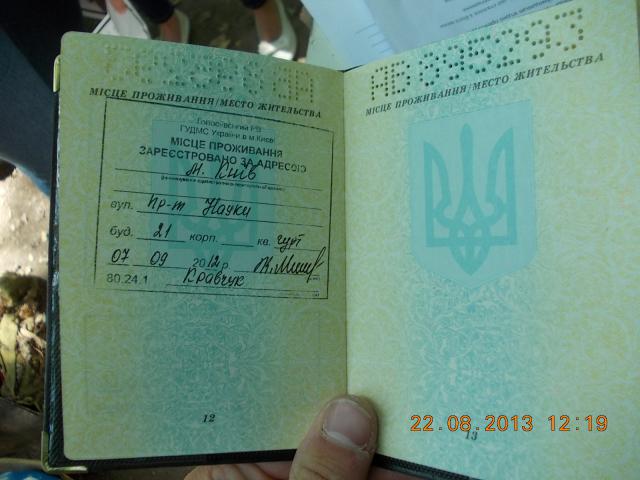 МІСЦЕ ПРОЖИВАННЯ/МЕСТО ЖИТЕЛЬСТВА
Голосіївський РВ
ГУДМС України в м.Києві
МІСЦЕ ПРОЖИВАННЯ
ЗАРЕЄСТРОВАНО ЗА АДРЕСОЮ
м. Київ
вул. пр-т Науки
буд. 21 корп. кв. гурт
07 09 2012 р.
80.24.1 Кравчук
12
АВ 895293
МІСЦЕ ПРОЖИВАННЯ/МЕСТО ЖИТЕЛЬСТВА
22.08.2013 12:19
13